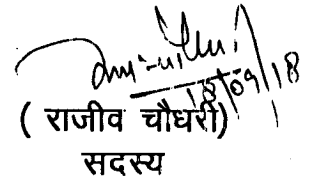 18/09/18
( राजीव चौधरी)
सदस्य